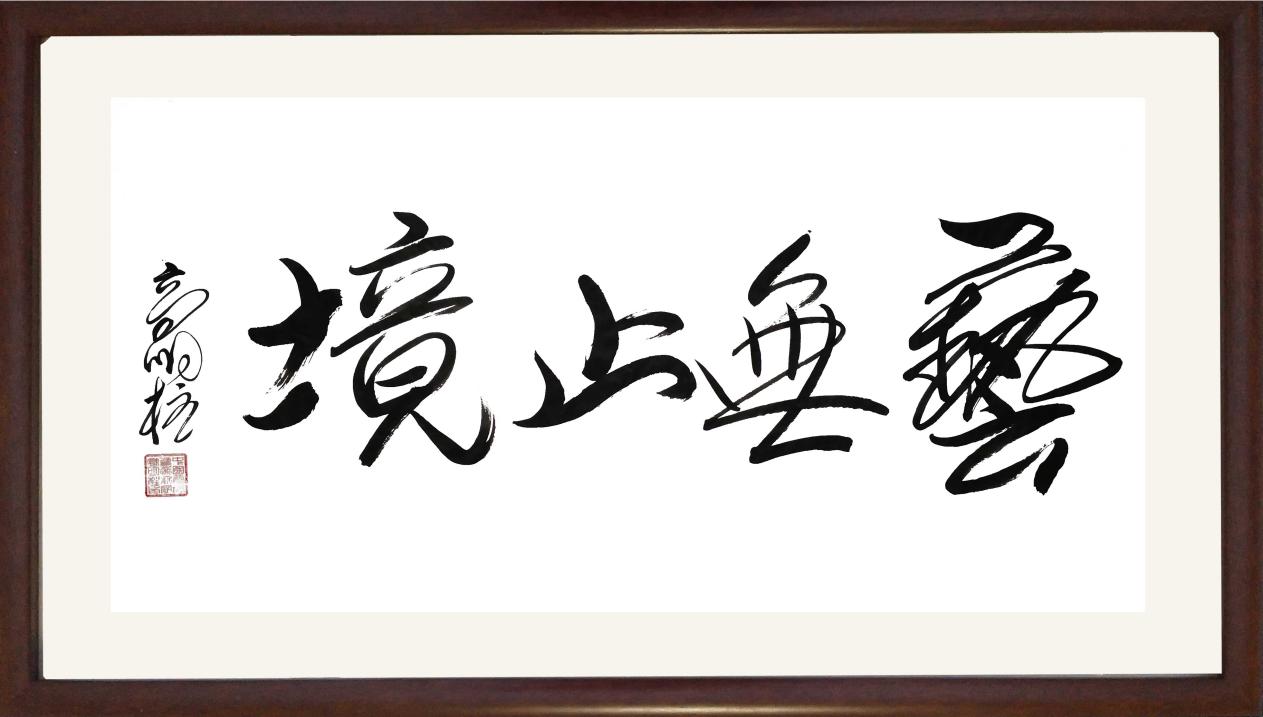 藝無止境